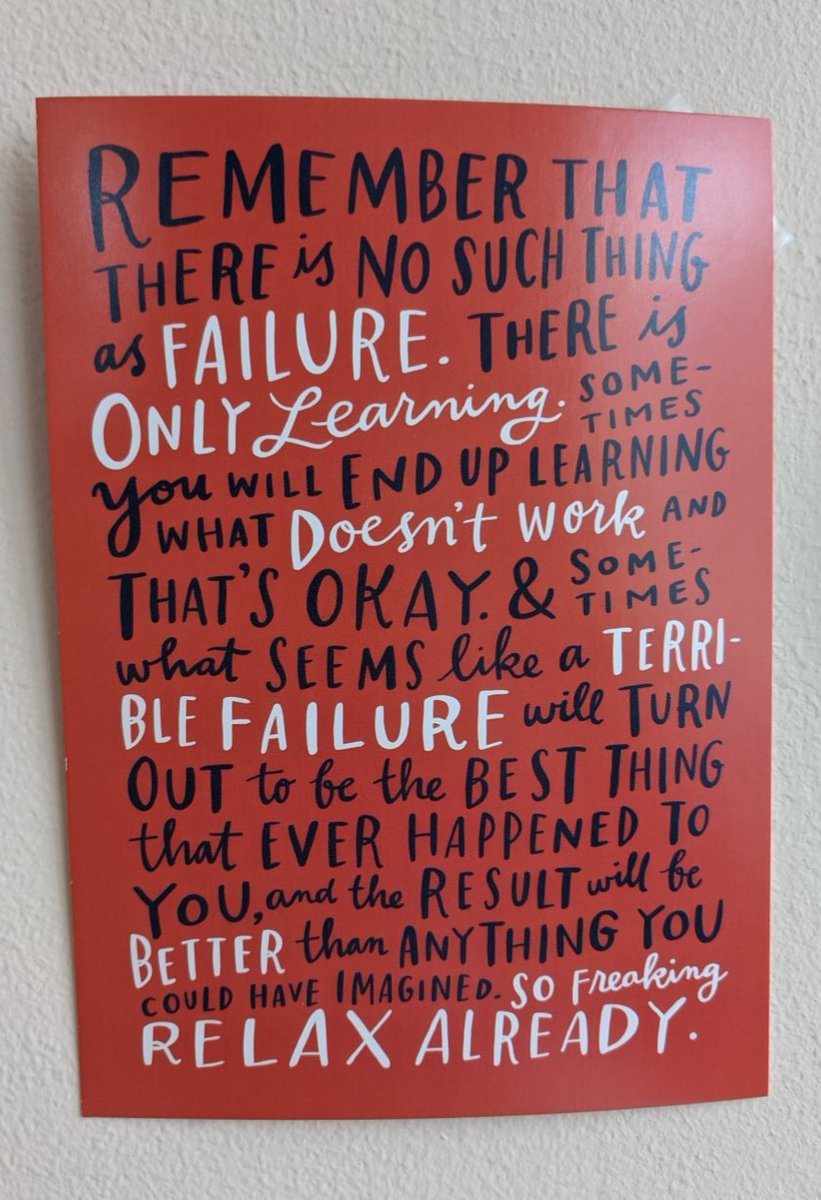 REMEMBER THAT
THERE is NO SUCH THING
as FAILURE. THERE is
ONLY Learning. SOME-
TIMES
you WILL END UP LEARNING
WHAT Doesn't work AND
THAT'S OKAY. & SOME-
TIMES
what SEEMS like a TERRI-
BLE FAILURE will TURN
OUT to be the BEST THING
that EVER HAPPENED TO
YOU, and the RESULT will be
BETTER than ANYTHING YOU
COULD HAVE IMAGINED. SO Freaking
RELAX ALREADY.